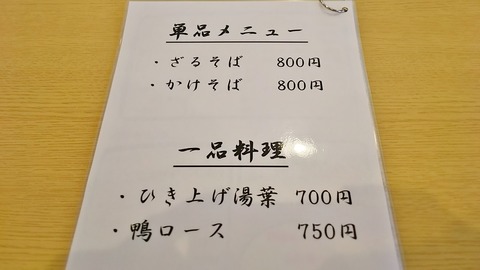 単品メニュー
・ざるそば 800円
・かけそば 800円
一品料理
・ひき上げ湯葉 700円
・鴨ロース 750円